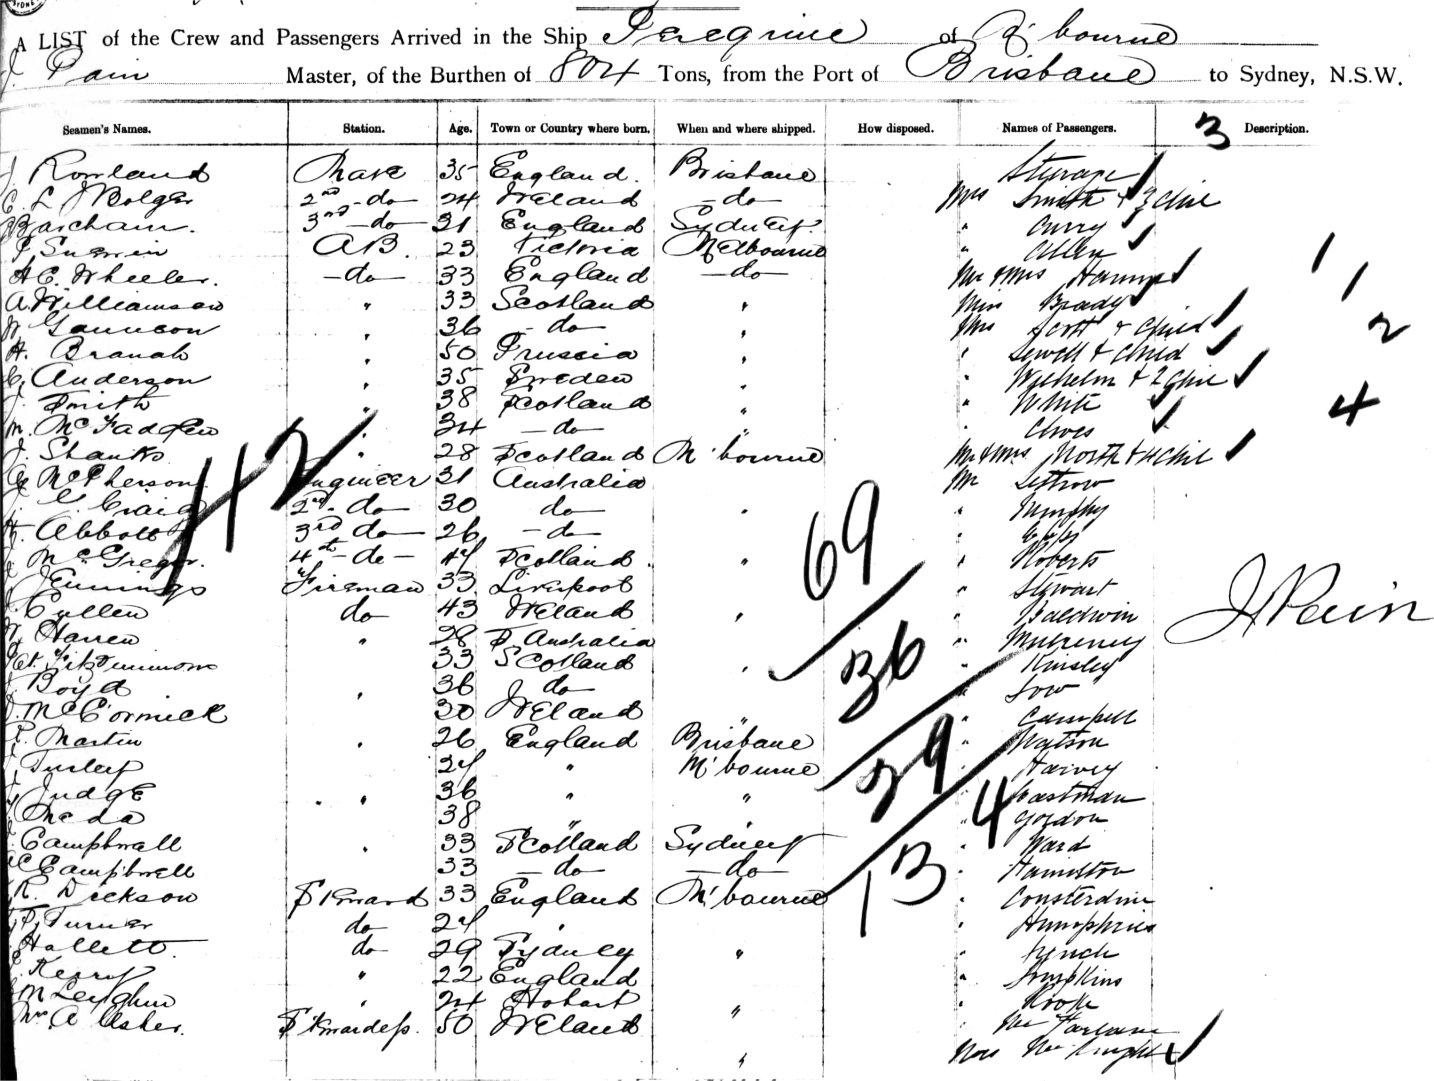 A LIST of the Crew and Passengers Arrived in the Ship Peregrine of M'bourne
J. Pain Master, of the Burthen of 804 Tons, from the Port of Brisbane to Sydney, N.S.W.
Seamen's Names. Station. Age. Town or Country where born. When and where shipped. How disposed. Names of Passengers. 3 Description.
J Rowland Mate 35 England. Brisbane Steerage
C. L. J Bolger 2nd do 24 Ireland do Mrs Smith + 3 Chil
Barcham. 3rd do 31 England Sydney. " Curry
23 Victoria Melbourne " Allen
A. B.
H C. Wheeler. do 33 England do Mr & Mrs 1
A. Williamson " 33 Scotland " Miss Brady 1
" 36 do " Mrs Scott + Child
H. Branah " 50 Prussia " " Sewell + Child 2
C. Anderson " 35 Sweden " " Wilhelm + 2 Chil
J. Smith " 38 Scotland " " White 4
M. McFadden " 34 do " "
J. Shanks " 28 Scotland M'bourne Mr & Mrs North + 4 Chil
McPherson Engineer 31 Australia Mr
42
J. Craig 2nd do 30 do " " Murphy
H. Abbott 3rd do 26 do "
J McGregor. 4th do 47 Scotland. " " Roberts
69
J Jennings Fireman 33 Liverpool " Stewart
J Cullen do 43 Ireland " " Baldwin
J Pain
Harren " 28 S Australia " Mulreney
36
Fitzsimmons 33 Scotland " " Kinsley
J. Boyd " 36 do " Low
J. McCormick 30 Ireland " " Campbell
Martin " 26 England Brisbane " Watson
Turley 24 " M'bourne " Harvey
29
J Judge " 36 " " " Eastman
Meda 38 " " " Gordon
4
Campbwell " 33 Scotland Sydney " Ward
Campbwell 33 do do " Hamilton
13
R. Dickson Steward 33 England M'bourne " Consterdine
Turner do 24 " " Humphries
Hallett. do 29 Sydney " " Lynch
Kerry " 22 England " Simpkins
M Leyghin " 24 Hobart " " Rooke
Mrs A Usher. Stewardess. 50 Ireland Mc Farlane
"